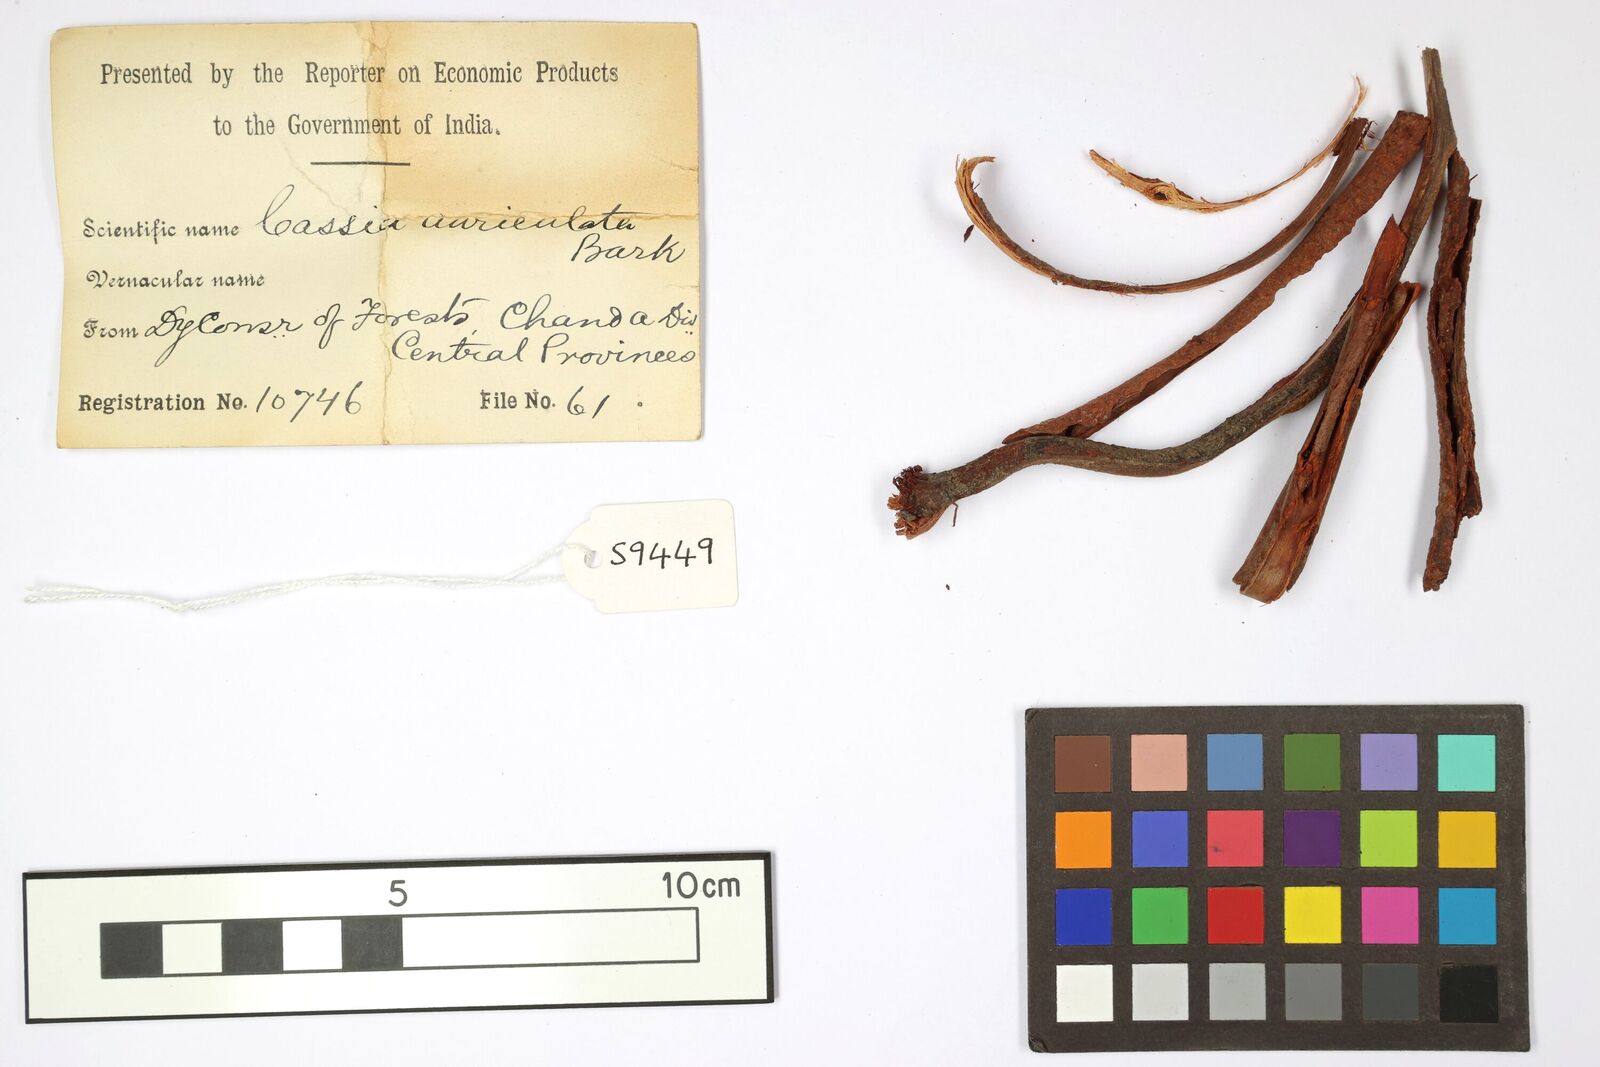 Presented by the Reporter on Economic Products
to the Government of India.
Scientific name Cassia auriculata
Bark
Vernacular name
From Dy Consr. of Forests, Chanda Div
Central Provinces
Registration No. 10746 File No. 61.
S9449
5 10cm